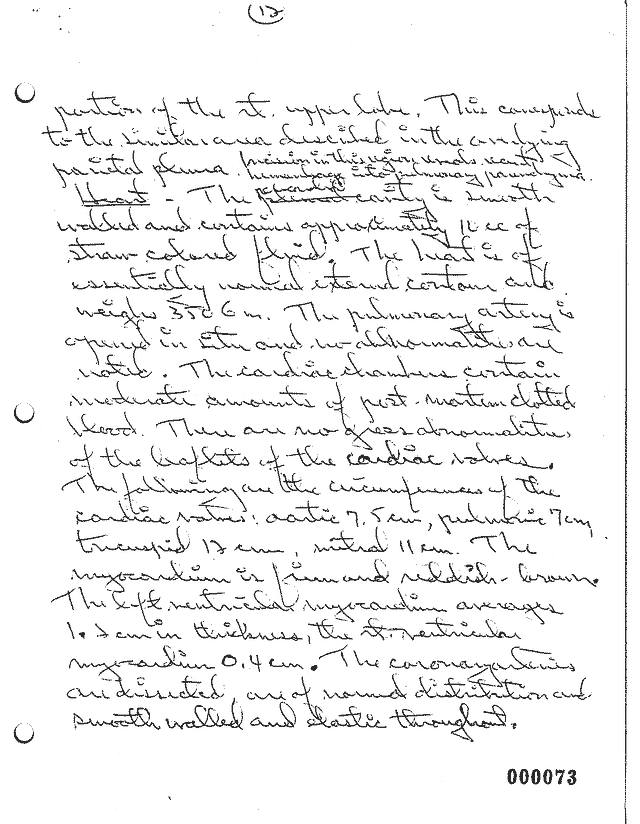 (12)
portion of the rt. upper lobe. This corresponds
to the similar area described in the overlying
parietal pleura. Incision in this region reveals recent
hemorrhage into pulmonary parenchyma.
Heart - The pericardial cavity is smooth
walled and contains approximately 10 cc of
straw-colored fluid. The heart is of
essentially normal external contour and
weighs 350 Gm. The pulmonary artery is
opened in situ and no abnormalities are
noted. The cardiac chambers contain
moderate amounts of post-mortem clotted
blood. There are no gross abnormalities
of the leaflets of the cardiac valves.
The following are the circumferences of the
cardiac valves: aortic 7.5 cm, pulmonic 7 cm,
tricuspid 12 cm, mitral 11 cm. The
myocardium is firm and reddish-brown.
The left ventricular myocardium averages
1.2 cm in thickness, the rt. ventricular
myocardium 0.4 cm. The coronary arteries
are dissected, are of normal distribution and
smooth walled and elastic throughout.
000073